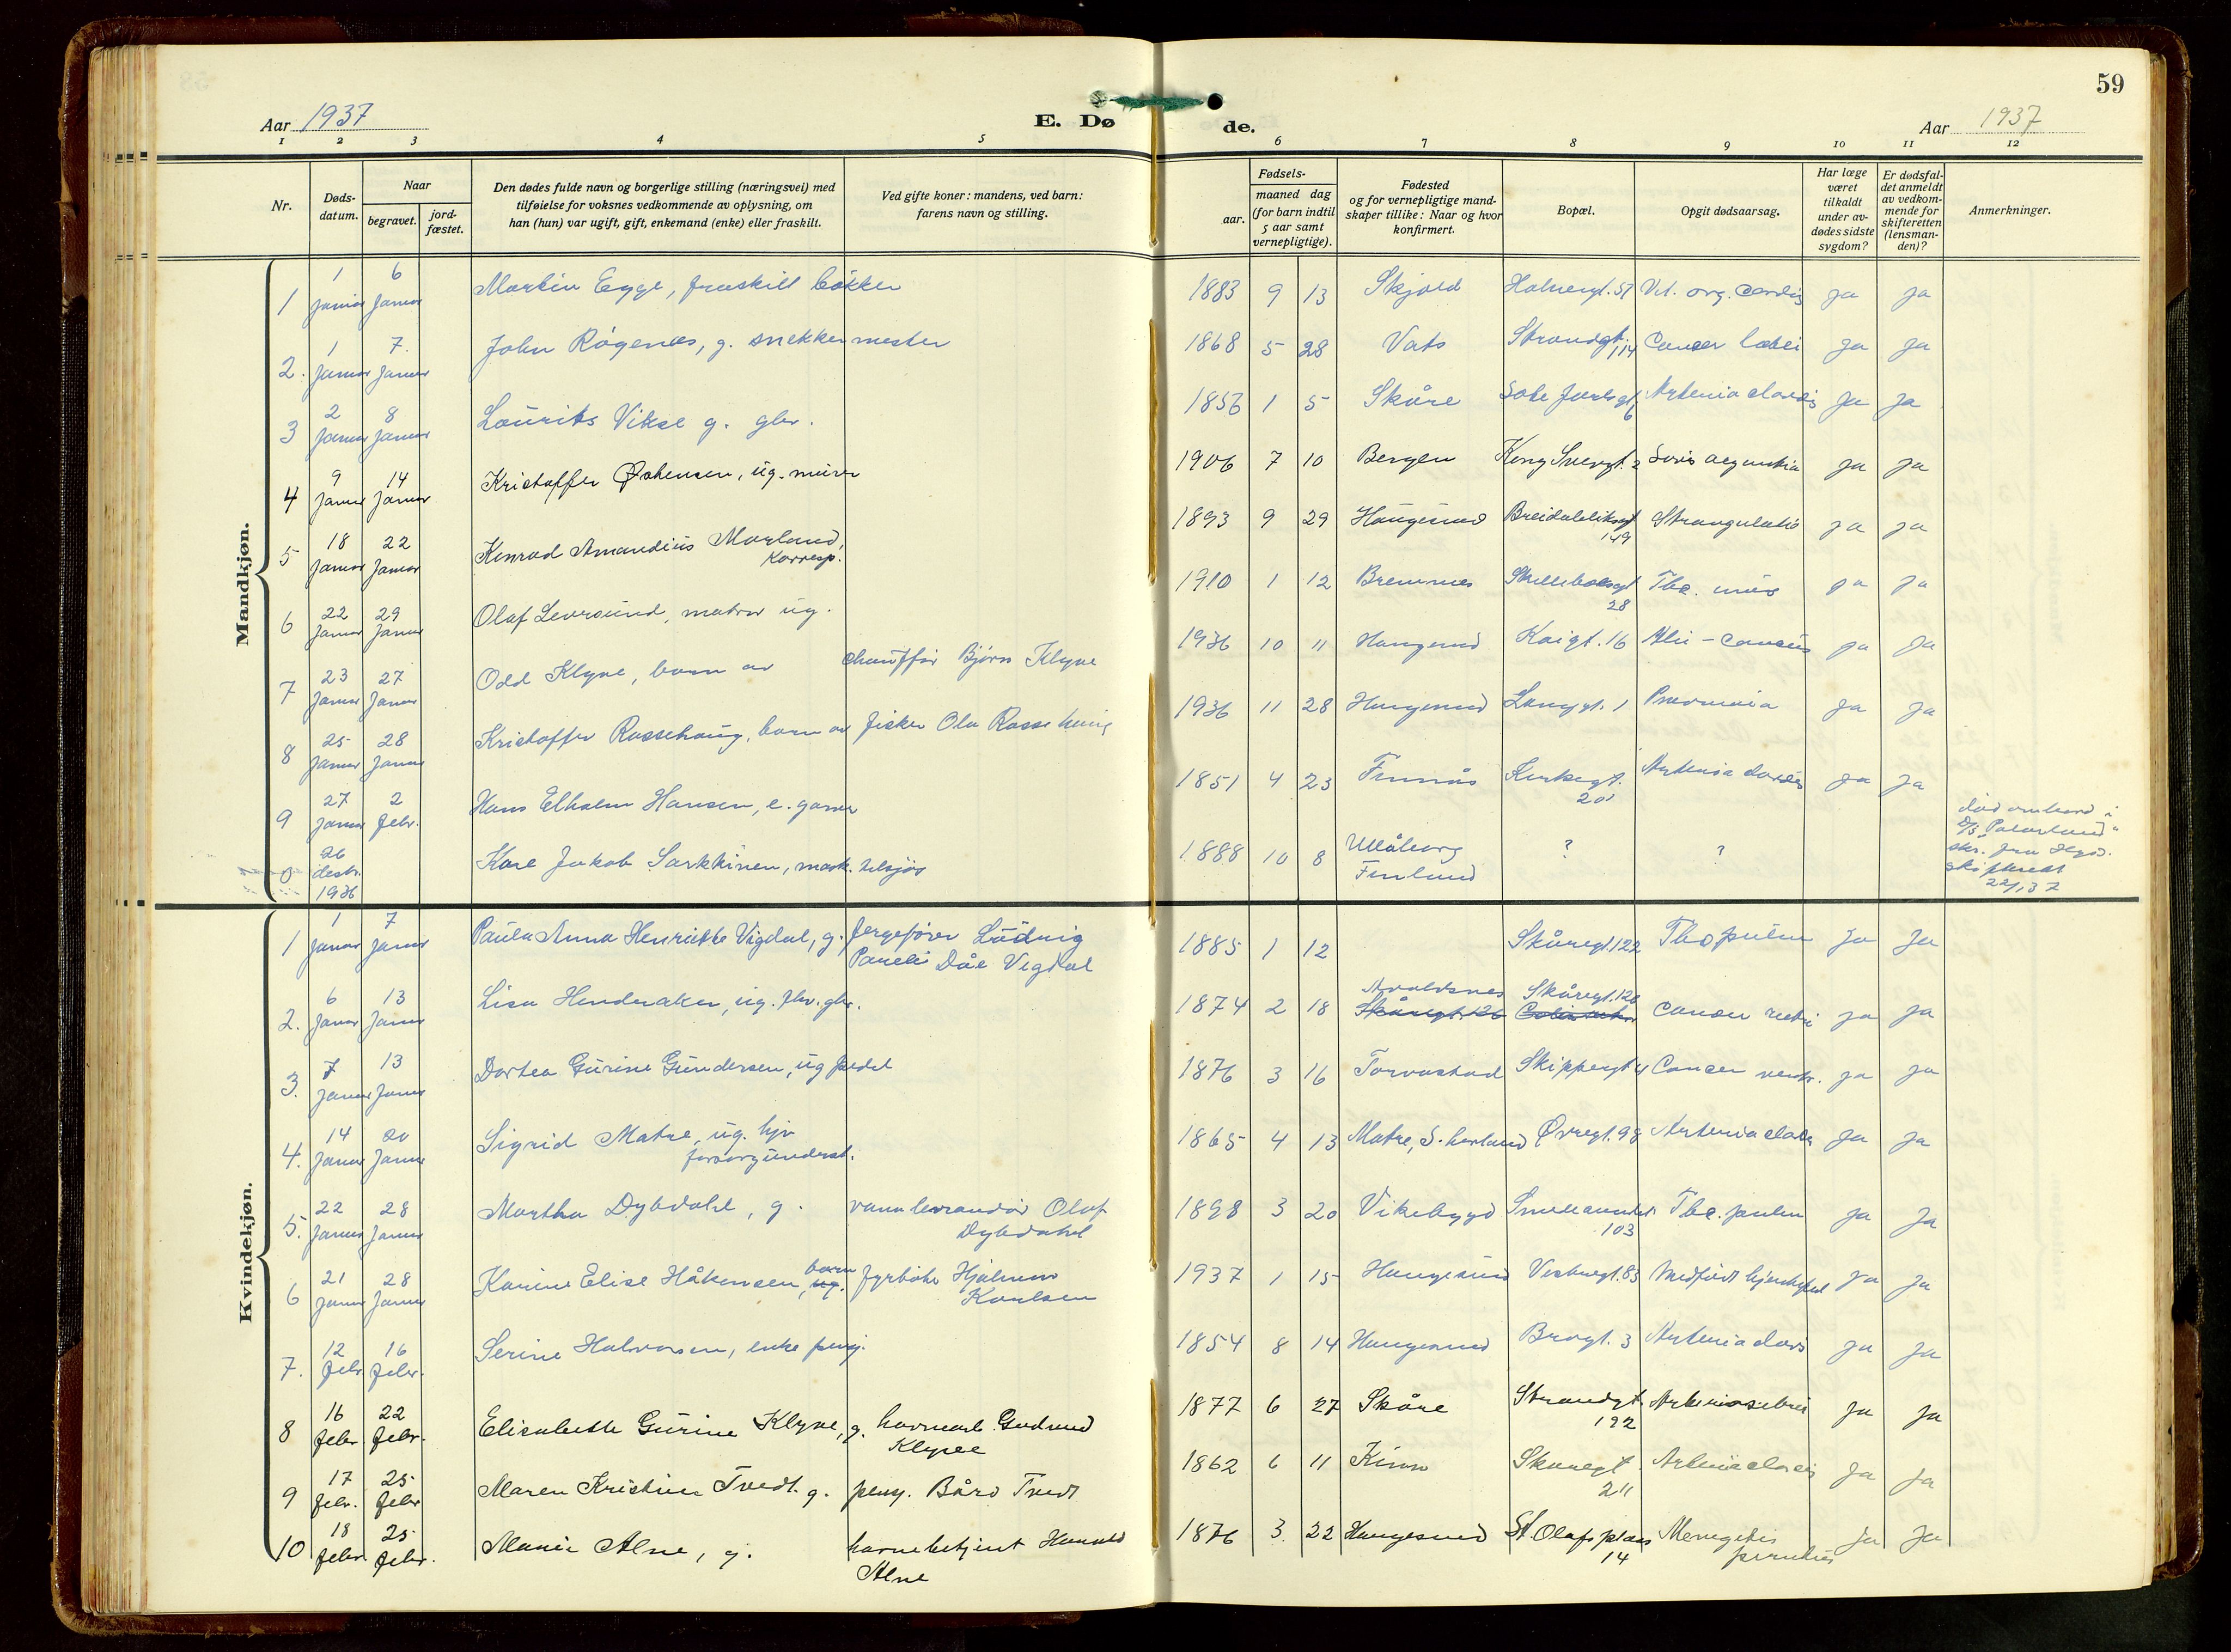 59
Aar 1937
E. Dø de.
Aar 1937
1 2 3 4 5 6 7 8 9 10 11 12
Nr.
Døds-
datum.
Naar
begravet.
jord-
fæstet.
Den dødes fulde navn og borgerlige stilling (næringsvei) med
tilføielse for voksnes vedkommende av oplysning, om
han (hun) var ugift, gift, enkemand (enke) eller fraskilt.
Ved gifte koner: mandens, ved barn:
farens navn og stilling.
Fødsels-
aar.
maaned dag
(for barn indtil
5 aar samt
vernepligtige).
Fødested
og for vernepligtige mand-
skaper tillike: Naar og hvor
konfirmert.
Bopæl.
Opgit dødsaarsag.
Har læge
været
tilkaldt
under av-
dødes sidste
sygdom?
Er dødsfal-
det anmeldt
av vedkom-
mende for
skifteretten
(lensman-
den)?
Anmerkninger.
Mandkjøn.
1 1 Januar 6 Januar Martin Egge, fraskilt bøkker 1883 9 13 Skjold 57 Vit. org. cordis Ja Ja
2. 1 Januar 7. Januar John Røgenes, g. snekkermester 1868 5 28 Vats Strandgt. 114 Cancer labii Ja Ja
3 2 Januar 8 Januar Laurits Vikse g. gbr. 1856 1 5 Skåre Sote Jarlsgt. 6 Ja Ja
4 9 Januar 14 Januar Kristoffer Østensen, ug. murer 1906 7 10 Bergen Kong Sverrgt. 2 Ja Ja
5 18 Januar 22 Januar Konrad Amandius Morland,
Korresp. 1893 9 29 Haugesund Breidablikgt 149 Strangulatio Ja Ja
6 22 Januar 29 Januar Olaf Leversund, matros ug. 1910 1 12 Bremnes 28 Tbc. Ja Ja
7 23 Januar 27 Januar Odd Klyve, barn av chauffør Bjørn Klyve 1936 10 11 Haugesund Kaigt. 16 Ja Ja
8 25 Januar 28 Januar Kristoffer Rossehaug, barn av fisker Ola Rossehaug 1936 11 28 Haugesund Langgt. 1 Pneumonia Ja Ja
9 27 Januar 2 Febr. Hans Elholm Hansen, e. garver 1851 4 23 Finnås Kirkegt. 20 Ja Ja
0 26 desbr. 1936 Karl Jakob Sarkkinen, mask. tilsjøs 1888 10 8 Uleåborg
Finland ? ? død ombord i
D/S "Palesland"
skr. fra Hgsd.
skifterett
22/1 37
Kvindekjøn.
1 1 Januar 7 Januar Paula Anna Henriette Vigdal, g. fergefører Ludvig
Pareli Dåe Vigdal 1885 1 12 Skåregt. 122 Tbc pulm Ja Ja
2. 6 Januar 13 Januar Lisa Henderaker, ug. fhv. gbr. 1874 2 18 Avaldsnes Skåregt. 126 Cancer recti Ja Ja
3. 7 Januar 13 Januar Dortea Gurine Gundersen, ug 1876 3 16 Torvastad Skippergt 4 Cancer ventr. Ja Ja
4. 14 Januar 20 Januar Sigrid Matre, ug. hjv
forsorgunderst. 1865 4 13 Matre, S. horland Øvregt. 98 Ja Ja
5. 22 Januar 28 Januar Martha Dybdahl, g. vannleverandør Olaf
Dybdahl 1898 3 20 Vikebygd 103 Tbc. pulm Ja Ja
6 21 Januar 28 Januar Karine Elise Håkonsen, barn fyrbøter Hjalmar
Karlsen 1937 1 15 Haugesund 83 Medfødt hjertefeil Ja Ja
7. 12 Febr 16 Febr. Serine Halvorsen, enke pensj. 1854 8 14 Haugesund Brogt. 3 Ja Ja
8 16 Febr 22 Febr. Elisabeth Gurine Klyve, g. havnearb. Gudmund
Klyve 1877 6 27 Skåre Strandgt 192 Ja Ja
9 17 Febr. 25 Febr Maren Kristine Tvedt. g. pensj. Bård Tvedt 1862 6 11 Kinn Skaregt 211 Ja Ja
10 18 Febr 25 Febr. Marie Alne, g. havnebetjent Harald
Alne 1876 3. 22 Haugesund St. Olafs plass 14 Ja Ja